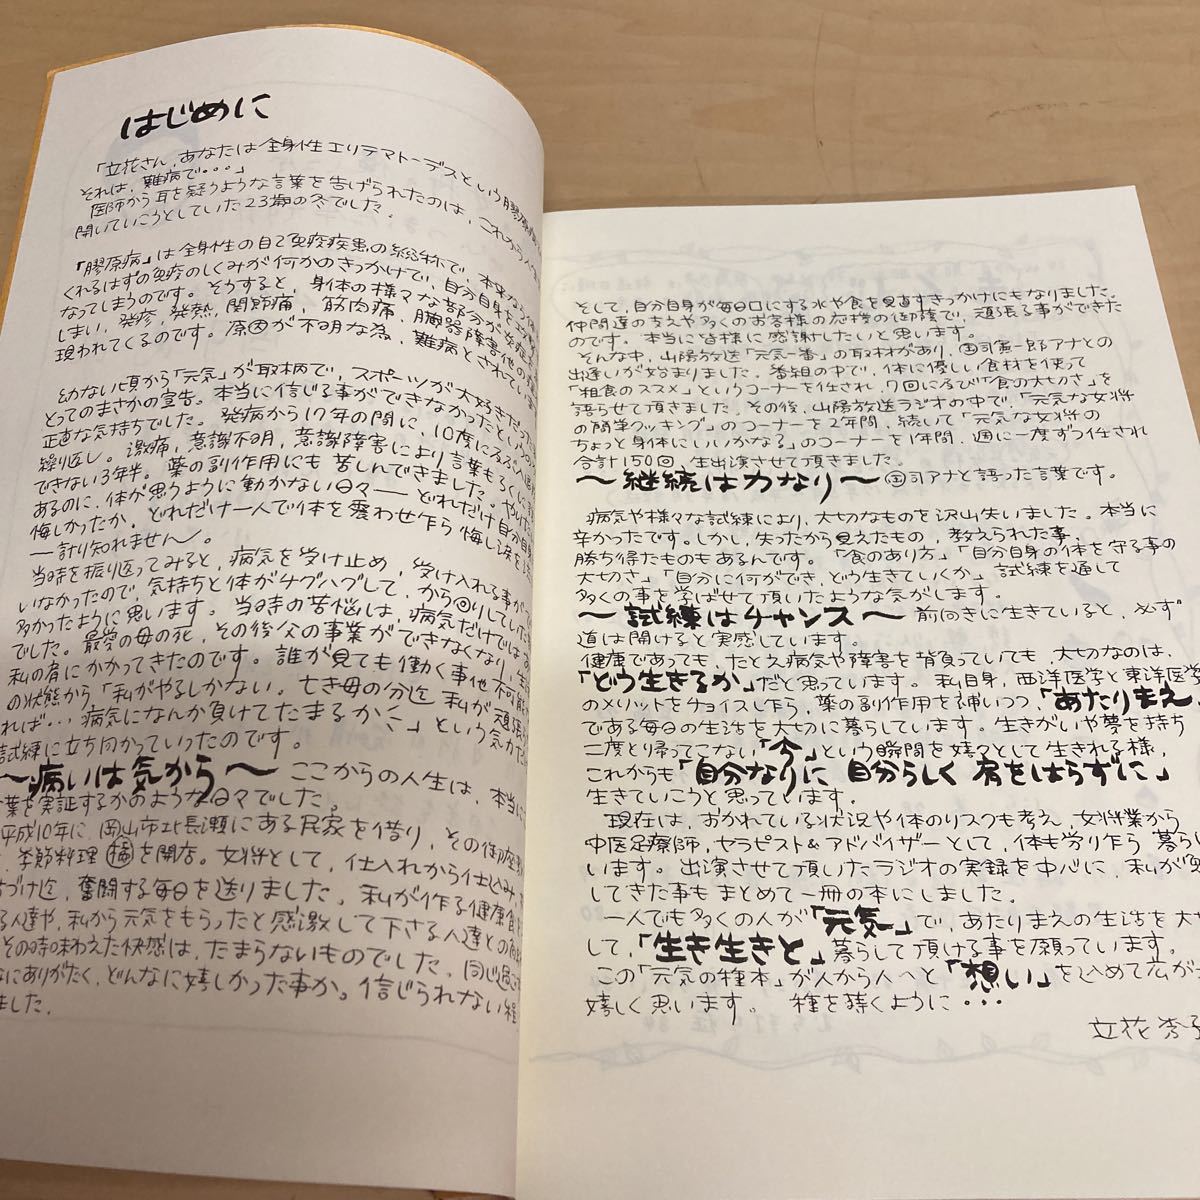 はじめに
「立花さん、あなたは全身性エリテマトーデスという膠原病
それは、難病で・・・」
医師から耳を疑うような言葉を告げられたのは、これから人生
開いていこうとしていた23歳の冬でした。
「膠原病」は全身性の自己免疫疾患の総称で、本来なら
くれるはずの免疫のしくみが何かのきっかけで、自分自身を
なってしまうのです。そうすると、身体の様々な部分が炎症
しまい、発疹、発熱、関節痛、筋肉痛、臓器障害他の
現われてくるのです。原因が不明な為、難病とされてい
幼ない頃から「元気」が取柄で、スポーツが大好きだった
とってのまさかの宣告。本当に信じる事ができなかったというの
正直な気持ちでした。発病から17年の間に、10度に及ぶ入
繰り返し。激痛、意識不明、意識障害により言葉もろくに
できない3年半。薬の副作用にも苦しんできました。やりたい
あるのに、体が思うように動かない日々── どれだけ自分自
悔しかったか、どれだけ一人で体を震わせ乍ら悔し涙を
─計り知れません。
当時を振り返ってみると、病気を受け止め、受け入れる事が
いなかったので、気持ちと体がチグハグして、から回りしていた
多かったように思います。当時の苦悩は、病気だけでは
でした。最愛の母の死、その後父の事業ができなくなり、生
私の肩にかかってきたのです。誰が見ても働く事他不可能
の状態から「私がやるしかない。亡き母の分迄 私が頑張
れば…病気になんか負けてたまるかこ」という気力だ
試練に立ち向かっていったのです。
～病いは気から～ ここからの人生は、本当に
葉を実証するかのような日々でした。
平成10年に、岡山市北長瀬にある民家を借り、その御座
季節料理 橘を開店。女将として、仕入れから仕込み、
片づけ迄、奮闘する毎日を送りました。私が作る健康食
る人達や、私から元気をもらったと感激して下さる人達との
その時味わえた快感は、たまらないものでした。同じ過ご
なにありがたく、どんなに嬉しかった事か。信じられない程
ました。
そして、自分自身が毎日口にする水や食を見直すきっかけにもなりました。
仲間達の支えや多くのお客様の応援の御蔭で、頑張る事ができた
のです。本当に皆様に感謝したいと思います。
そんな中、山陽放送「元気一番」の取材があり、国司憲一郎アナとの
出逢いが始まりました。番組の中で、体に優しい食材を使って
「粗食のススメ」というコーナーを任され、7回に及び「食の大切さ」を
語らせて頂きました。その後、山陽放送ラジオの中で、「元気な女将
の簡単クッキング」のコーナーを2年間、続いて「元気な女将の
ちょっと身体にいいかなる」のコーナーを1年間、週に一度ずつ任され
合計150回、生出演させて頂きました。
～継続は力なり～ 国司アナと語った言葉です。
病気や様々な試練により、大切なものを沢山失いました。本当に
辛かったです。しかし、失ったから見えたもの、教えられた事、
勝ち得たものもあるんです。「食のあり方」「自分自身の体を守る事の
大切さ」「自分に何ができ、どう生きていくか」試練を通して
多くの事を学ばせて頂いたような気がします。
～試練はチャンス～ 前向きに生きていると、必ず
道は開けると実感しています。
健康であっても、たとえ病気や障害を背負っていても、大切なのは、
「どう生きるか」だと思っています。私自身、西洋医学と東洋医学
のメリットをチョイスし乍ら、薬の副作用を補いつつ「あたりまえ」
である毎日の生活を大切に暮らしています。生きがいや夢を持ち
二度と帰ってこない「今」という瞬間を嬉々として生きれる様、
これからも「自分なりに 自分らしく 肩をはらずに」
生きていこうと思っています。
現在は、おかれている状況や体のリスクも考え、女将業から
中医足療師、セラピスト&アドバイザーとして、体も労り乍ら 暮らし
います。出演させて頂いたラジオの実録を中心に、私が
してきた事も まとめて一冊の本にしました。
一人でも多くの人が「元気」で、あたりまえの生活を大
して、「生き生きと」暮らして頂ける事を願っています。
この「元気の種本」が人から人へと「想い」を込めて広が
嬉しく思います。 種を蒔くように・・・
立花 秀子